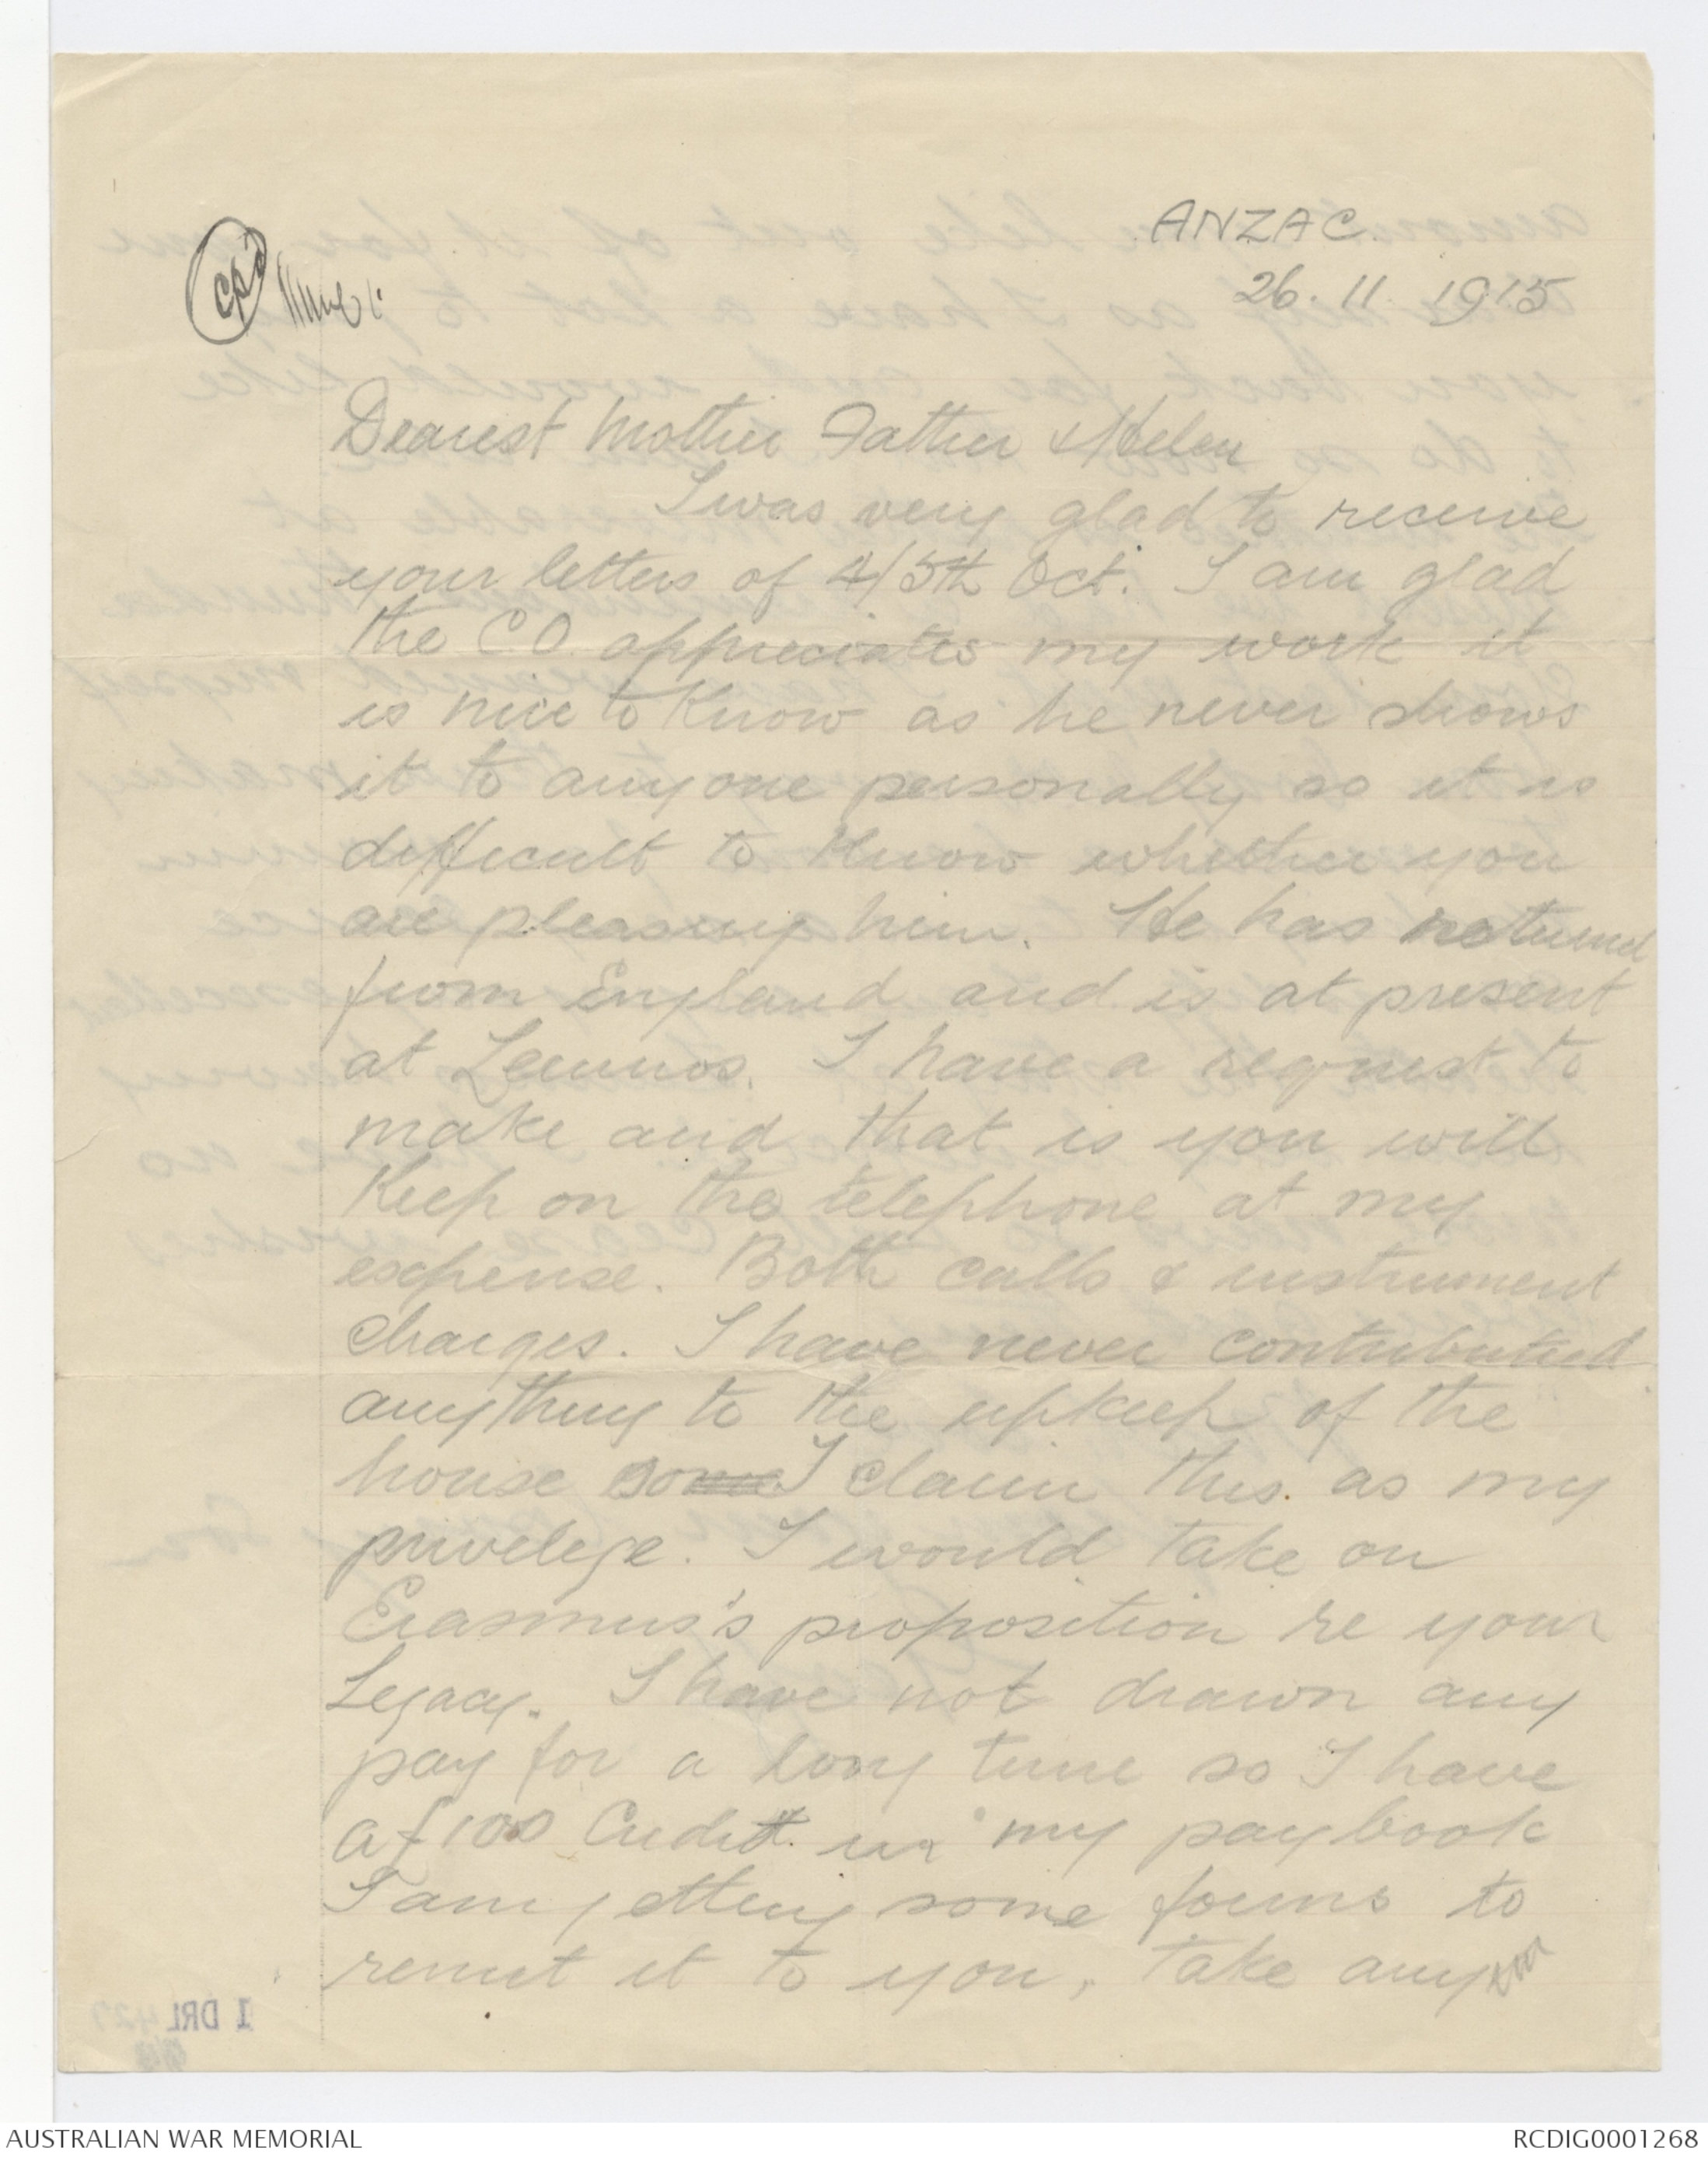 ANZAC.
26. 11. 1915
Dearest Mother Father & Helen
I was very glad to receive
your letters of 4/5th Oct. I am glad
the CO appreciates my work it
is nice to know as he never shows
it to anyone personally so it is
difficult to know whether you
are pleasing him. He has returned
from England and is at present
at Lemnos. I have a request to
make and that is you will
keep on the telephone at my
expense. Both calls & instrument
charges. I have never contributed
anything to the upkeep of the
house so I claim this as my
privelege. I would take on
Erasmus's proposition re your
Legacy. I have not drawn any
pay for a long time so I have
a £100 Credit in my paybook
I am getting some forms to
remit it to you, take any
1 DRL 427
AUSTRALIAN WAR MEMORIAL
RCDIG0001268